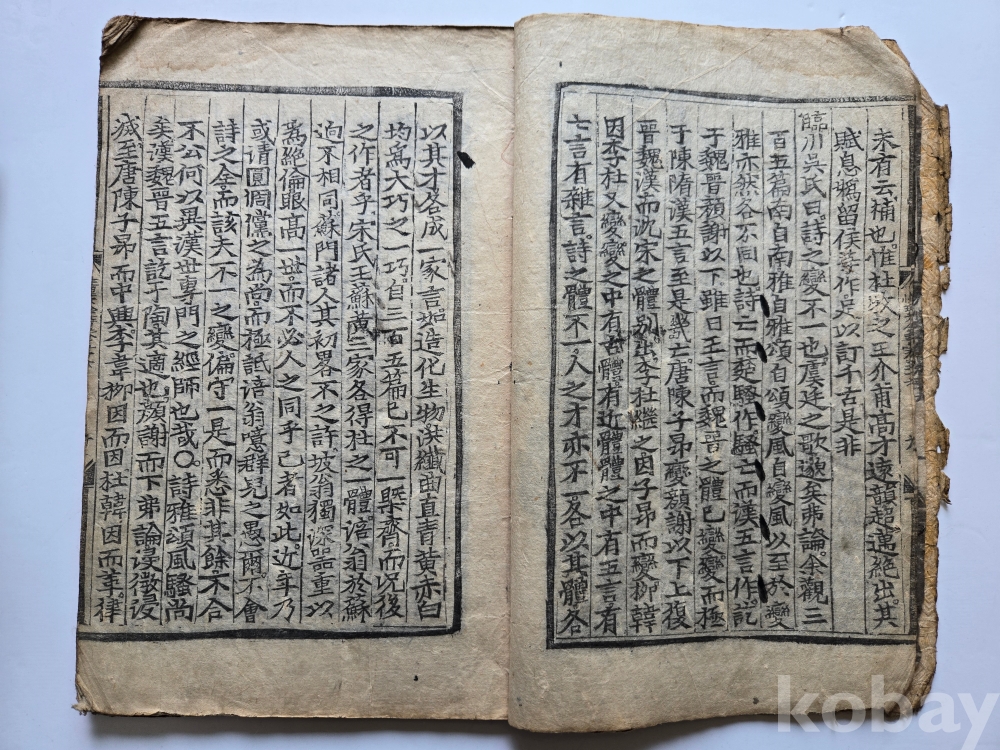 未有云補也惟杜牧之王介甫高才遠韻超邁絶出其
賦息嬀留侯等作足以訂千古是非
臨川吳氏曰詩之變不一也虞廷之歌邈矣弗論余觀三
百五篇南自南雅自雅頌自頌變風自變風以至於變
雅亦然各不同也詩亡而楚騷作騷亡而漢五言作訖
于魏晉顔謝以下雖曰五言而魏晉之體已變變而極
于陳隋漢五言至是幾亡唐陳子昂變顔謝以下上復
晉魏漢而沈宋之體別出李杜繼之因子昂而變柳韓
因李杜又變變之中有古體有近體體之中有五言有
七言有雜言詩之體不一人之才亦不一各以其體各
以其才各成一家言如造化生物洪纖曲直青黃赤白
均爲大巧之一巧自三百五篇已不可一槩齊而况後
之作者乎宋氏王蘇黃三家各得杜之一體涪翁於蘇
逈不相同蘇門諸人其初畧不之許坡翁獨深器重以
爲絶倫眼高一世而不必人之同乎已者如此近年乃
或清圓倜儻之爲尚而極詆涪翁噫群兒之愚爾不會
詩之全而該夫不一之變偏守一是而悉非其餘不合
不公何以異漢世專門之經師也哉○詩雅頌風騷尚
矣漢魏晉五言訖于陶其適也顔謝而下弗論浸徵浸
滅至唐陳子昂而中興李韋柳因而因杜韓因而革律
kobay